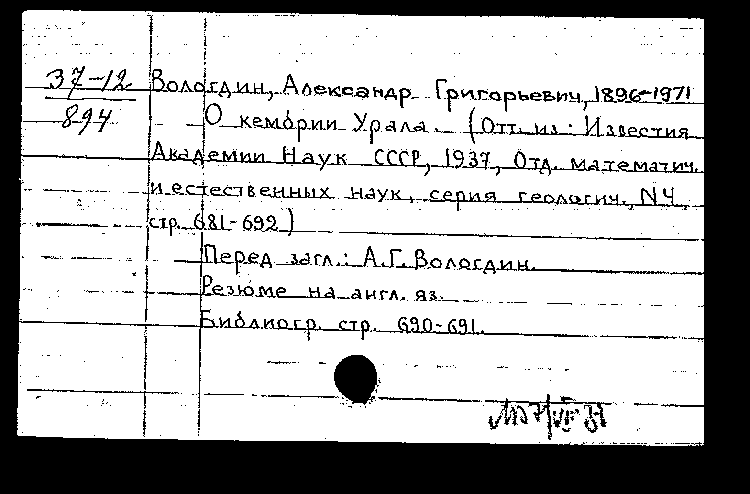 37-12
894
Вологдин, Александр Григорьевич, 1896-1971
О кембрии Урала. (Отт. из: Известия
Академии Наук СССР, 1937, Отд. математич.
и естественных наук, серия геологич., N4,
стр. 681-692)
Перед загл.: А.Г. Вологдин.
Резюме на англ. яз.
Библиогр. стр. 690-691.